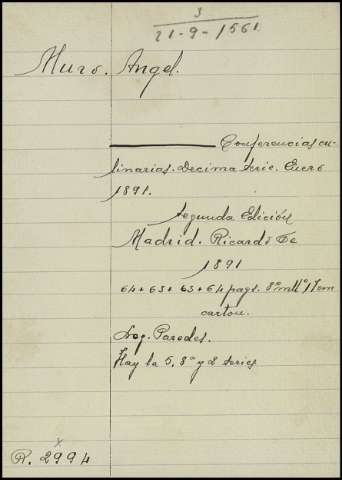 3
21-9-1561
Muro. Angel.
Conferencias cu-
linarias. Decima serie. Enero
1891.
Segunda Edición
Madrid. Ricardo Fe
1891
64+63+63+64 pags. 8º mllª 17cm
carton.
Leg. Paredes.
Hay la 5, 8ª y 2 series
x
R. 2994